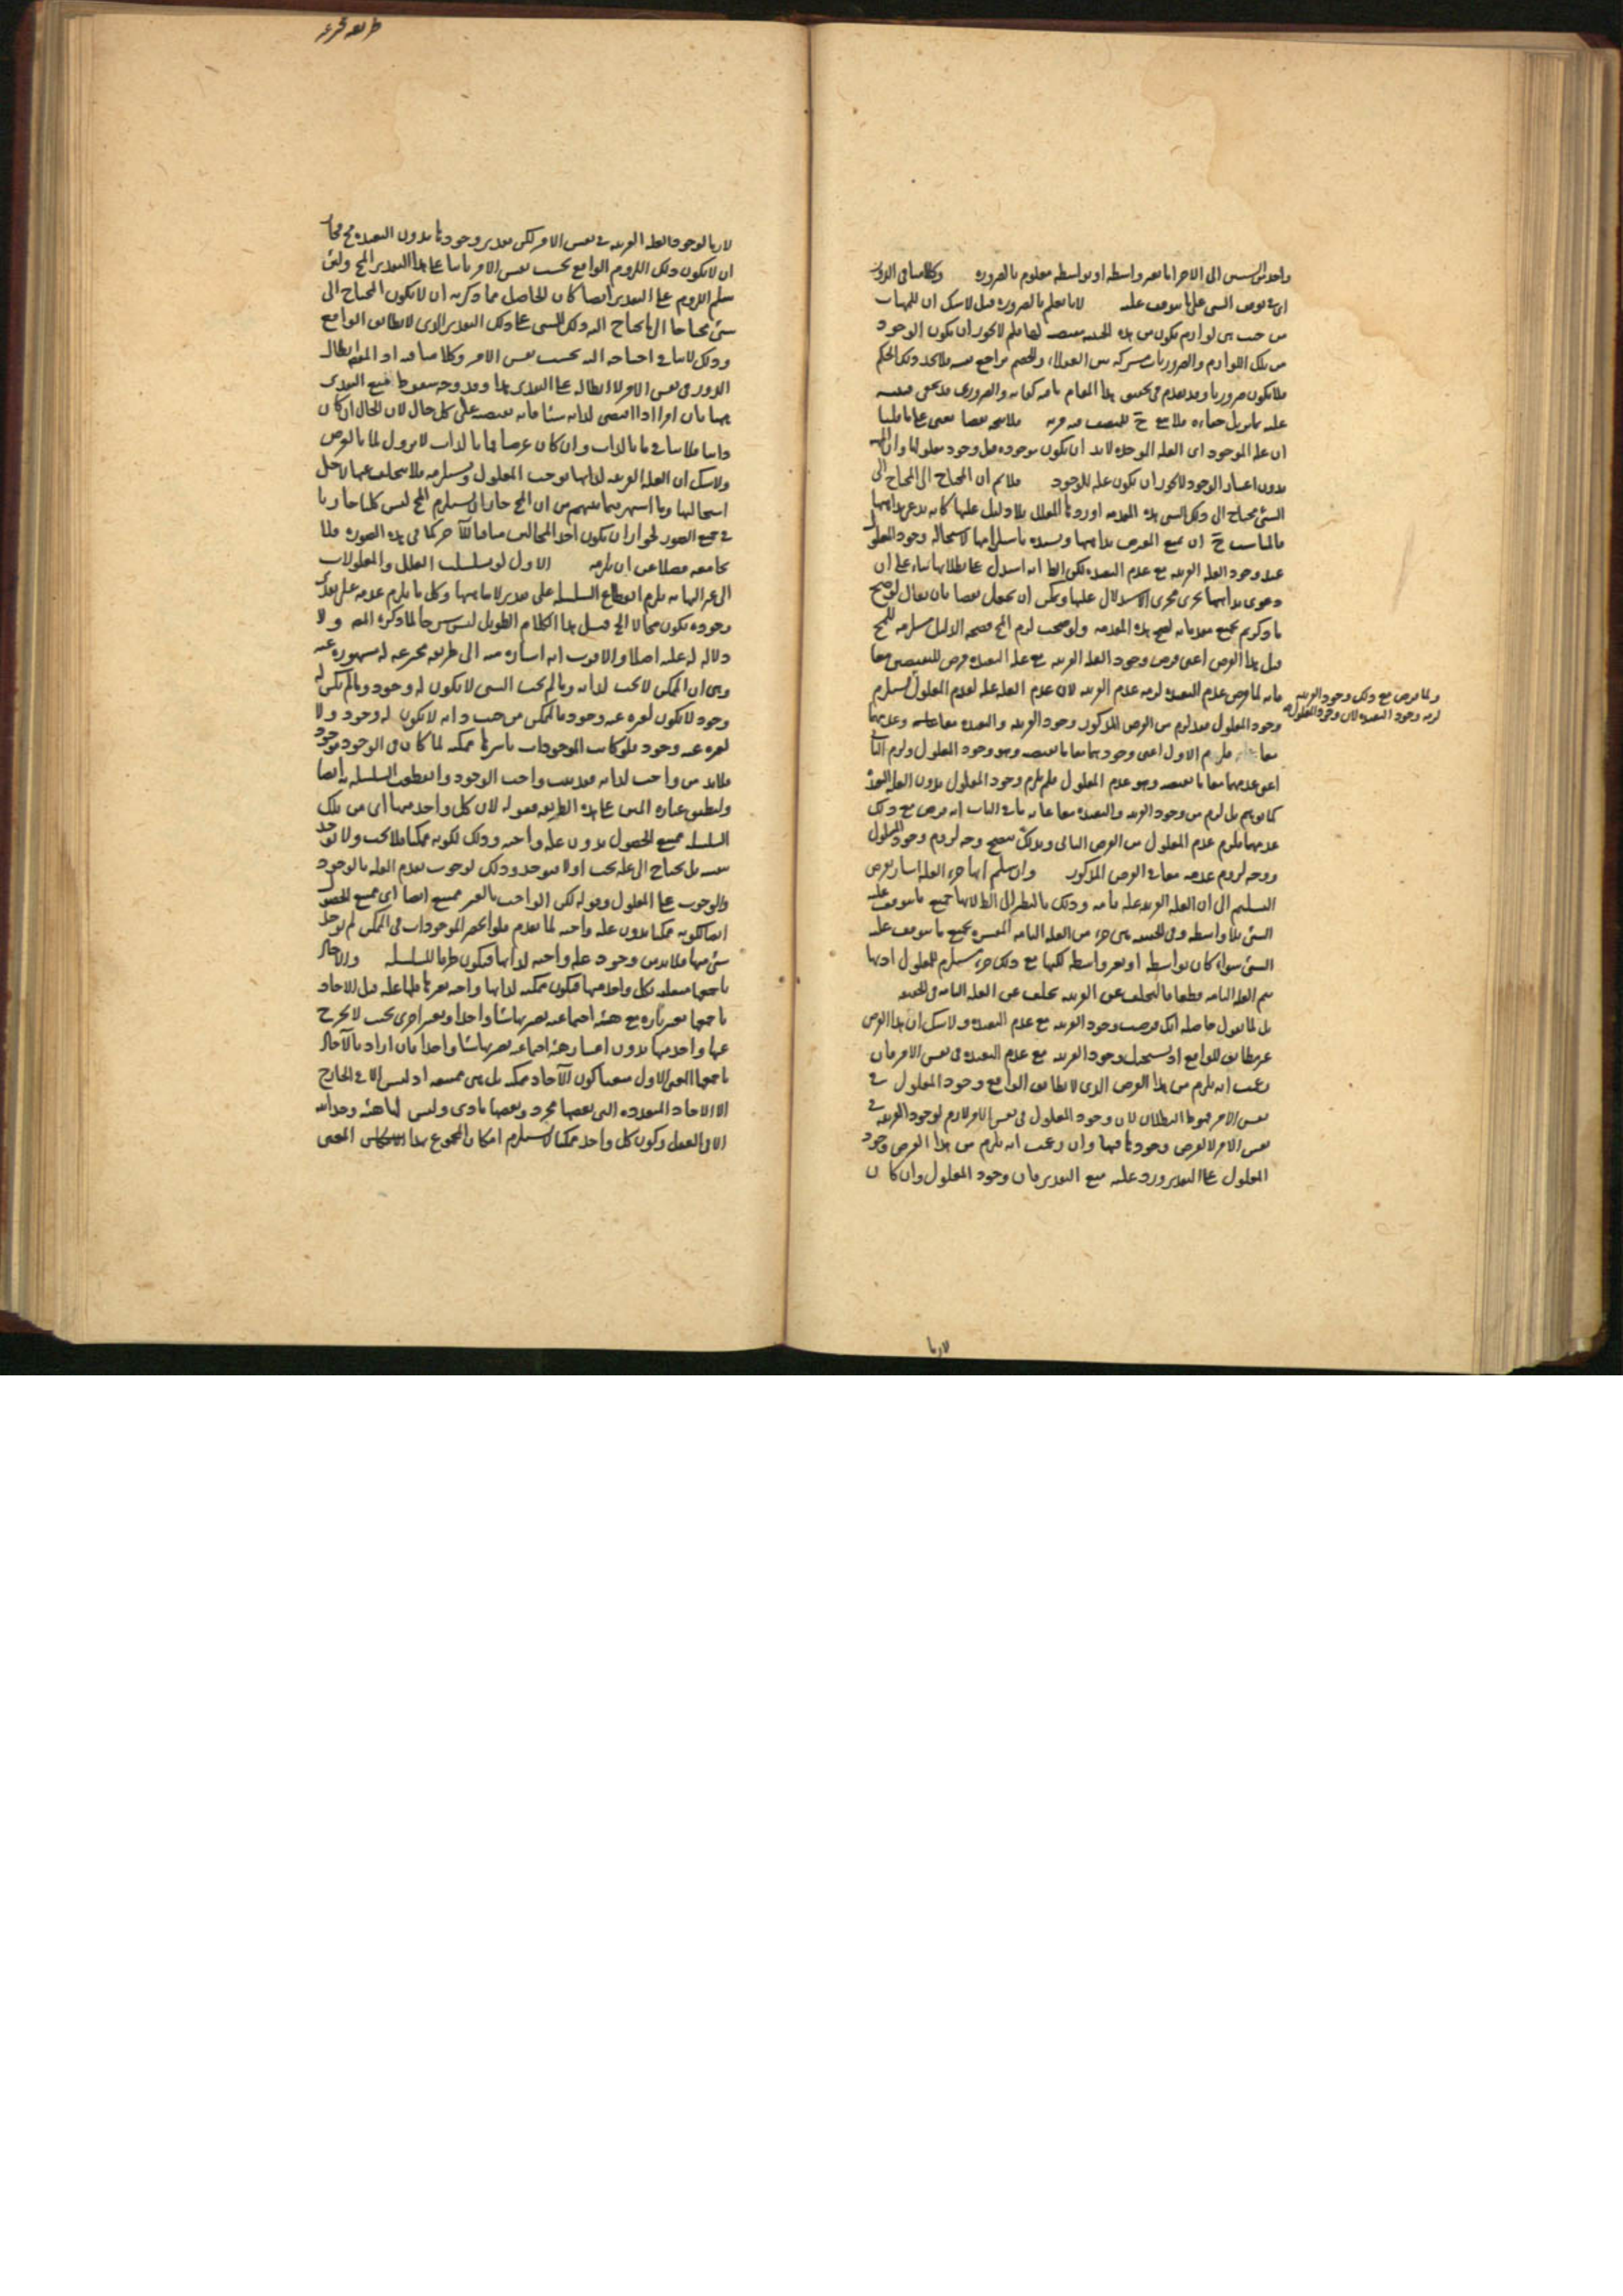 واحد من الشيئين الى الاخر اما بغير واسطة او بواسطة معلوم بالضرورة وكلامنا فى الدور
اى فى توقف الشئ على ما يتوقف عليه لانا نعلم بالضرورة قيل لا شك ان للمهيات
من حيث هى لوازم يكون من هذه الحيثية مقتضية لها فلم لا يجوز ان يكون الوجود
من تلك اللوازم والضروريات مشتركة بين العقلاء والخصم يراجع نفسه فلا يجد ذلك الحكم
فلا يكون ضروريا وقد تقدم فى تحقيق هذا المقام ما فيه كفاية والضرورى قد يخفى
ان علة الموجود اى العلة الموجدة لابد ان يكون موجودة قبل وجود معلولها وان
بدون اعتبار الوجود لا يجوز ان يكون علة للوجود فلا نم ان المحتاج الى المحتاج الى
الشئ محتاج الى ذلك الشئ هذه المقدمة اوردها المعلل بلا دليل عليها كانه يدعى بداهتها
فالمناسب ح ان يمنع المعترض بداهتها ويسنده باستلزامها لاستحالة وجود المعلول
عند وجود العلة القريبة مع عدم البعيدة لكن لما انه استدل على بطلانها بناء على ان
دعوى بداهتها يجرى مجرى الاستدلال عليها ويمكن ان يجعل نقضا بان يقال لو صح
ما ذكرتم بجميع مقدماته لصح هذه المقدمة ولو صحت لزم المح فصحة الدليل مستلزمة للمح
قيل هذا الفرض اعنى فرض وجود العلة القريبة مع علة البعيدة فرض للنقيضين معا
فانه لما فرض عدم البعيدة لزمه عدم القريبة لان عدم العلة علة لعدم المعلول
ولما فرض مع ذلك وجود القريبة
لزمه وجود البعيدة لان وجود المعلول
وجود المعلول فقد لزم من الفرض المذكور وجود القريبة والبعيدة معا وعدمهما
معا فلزم الاول اعنى وجودهما معا ما يقتضيه وهو وجود المعلول ولزم الثانى
اعنى عدمهما معا ما يقتضيه وهو عدم المعلول فلم يلزم وجود المعلول بدون العلة البعيدة
كما توهم بل لزم من وجود القريبة والبعيدة معا غايته فى الباب انه فرض مع ذلك
عدمهما فلزم عدم المعلول من الفرض الثانى وبذلك يتضح وجه لزوم وجود المعلول
ووجه لزوم عدمه معا فى الفرض المذكور وان سلم انها جزء العلة اشار بفرض
التسليم الى ان العلة القريبة علة تامة وذلك بالنظر الى اطلاقها جميع ما يتوقف عليه
الشئ بلا واسطة وفى الحقيقة هى جزء من العلة التامة المفسرة بجميع ما يتوقف عليه
الشئ سواء كان بواسطة او بغير واسطة لكنها مع ذلك جزء مستلزم للمعلول اذ بها
يتم العلة التامة قطعا فالتخلف عن القريبة تخلف عن العلة التامة فى الحقيقة
بل لما نقول حاصله انك فرضت وجود القريبة مع عدم البعيدة ولا شك ان هذا الفرض
غير مطابق للواقع اذ يستحيل وجود القريبة مع عدم البعيدة فى نفس الامر فان
زعمت انه يلزم من هذا الفرض الذى لا يطابق الواقع وجود المعلول فى
نفس الامر فهو ظ البطلان لان وجود المعلول فى نفس الامر لازم لوجود القريبة فى
نفس الامر لا لفرض وجودها فيها وان زعمت انه يلزم من هذا الفرض وجود
المعلول على التقدير ورد عليه منع التقدير فان وجود المعلول وان كان
لازما
طريقة مخترعة
لازما لوجود العلة القريبة فى نفس الامر لكن تقدير وجودها بدون البعيدة مح فجاز
ان لا يكون ذلك اللزوم الواقع بحسب نفس الامر ثابتا على هذا التقدير المح ولئن
سلم اللزوم على التقدير ايضا كان الحاصل مما ذكرته ان لا يكون المحتاج الى
شئ محتاجا الى ما يحتاج اليه ذلك الشئ على ذلك التقدير الذى لا يطابق الواقع
وذلك لا ينافى احتياجه اليه بحسب نفس الامر وكلامنا فيه اذ المقصود ابطال
الدور فى نفس الامر لا ابطاله على التقدير هذا وقد وجه سقوط منع التقدير
ههنا بان امرا اذا اقتضى لذاته شيئا فانه يقتضيه على كل حال لان الحال ان كان
ذاتيا فلا ينافى ما بالذات وان كان عرضيا فما بالذات لا يزول لما بالعرض
ولا شك ان العلة القريبة لذاتها توجب المعلول ويستلزمه فلا يتخلف عنها لاجل
استحالتها وما اشتهر فيما بينهم من ان المح جاز ان يستلزم المح ليس كليا جاريا
فى جميع الصور لجواز ان يكون احد المحالين منافيا للآخر كما فى هذه الصورة فلا
يجامعه فضلا عن ان يلزمه الاول لو تسلسلت العلل والمعلولات
الى غير النهاية يلزم انقطاع السلسلة على تقدير لا تناهيها وكل ما يلزم عدمه على تقدير
وجوده يكون محالا الخ قيل هذا الكلام الطويل ليس شرحا لما ذكره المص ولا
دلالة له عليه اصلا والاقرب انه اشارة منه الى طريقة مخترعة له مشهورة عنه
وهى ان الممكن لا يجب لذاته وما لم يجب الشئ لا يكون له وجود وما لم يكن له
وجود لا يكون لغيره عنه وجود فالممكن من حيث ذاته لا يكون له وجود ولا
لغيره عنه وجود فلو كانت الموجودات باسرها ممكنة لما كان فى الوجود موجود
فلابد من واجب لذاته فقد ثبت واجب الوجود وانقطعت السلسلة به ايضا
وتطبيق عبارة المتن على هذه الطريقة فقوله لان كل واحد منها اى من تلك
السلسلة ممتنع الحصول بدون علة واجبة وذلك لكونه ممكنا فلا يجب ولا يوجد
بنفسه بل يحتاج الى علة يجب اولا فيوجد وذلك لوجوب تقدم العلة بالوجود
والوجوب على المعلول وقوله لكن الواجب بالغير ممتنع ايضا اى ممتنع الحصول
ايضا لكونه ممكنا بدون علة واجبة لما تقدم فلو انحصر الموجودات فى الممكن لم يوجد
شئ منها فلابد من وجود علة واجبة لذاتها فيكون طرفا للسلسلة والآحاد
باجمعها متعلقة بكل واحد منها فيكون ممكنة لذاتها واجبة بغيرها فلها علة قيل الآحاد
باجمعها تعتبر تارة مع هيئة اجتماعية تصير بها شيئا واحدا وتعتبر اخرى بحيث لا يخرج
عنها واحد منها بدون اعتبار هيئة اجتماعية تصير بها شيئا واحدا فان اراد بالآحاد
باجمعها المعنى الاول منعنا كون الآحاد ممكنة بل هى ممتنعة اذ ليس الا فى الخارج
الا الآحاد المتعددة التى بعضها مجرد وبعضها مادى وليس لها هيئة وحدانية
الا فى العقل وكون كل واحد ممكنا لا يستلزم امكان المجموع بهذا المعنى